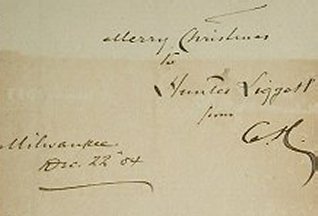 Merry Christmas
to
Hunter Liggett
from
Milwaukee.
Dec. 22" 04